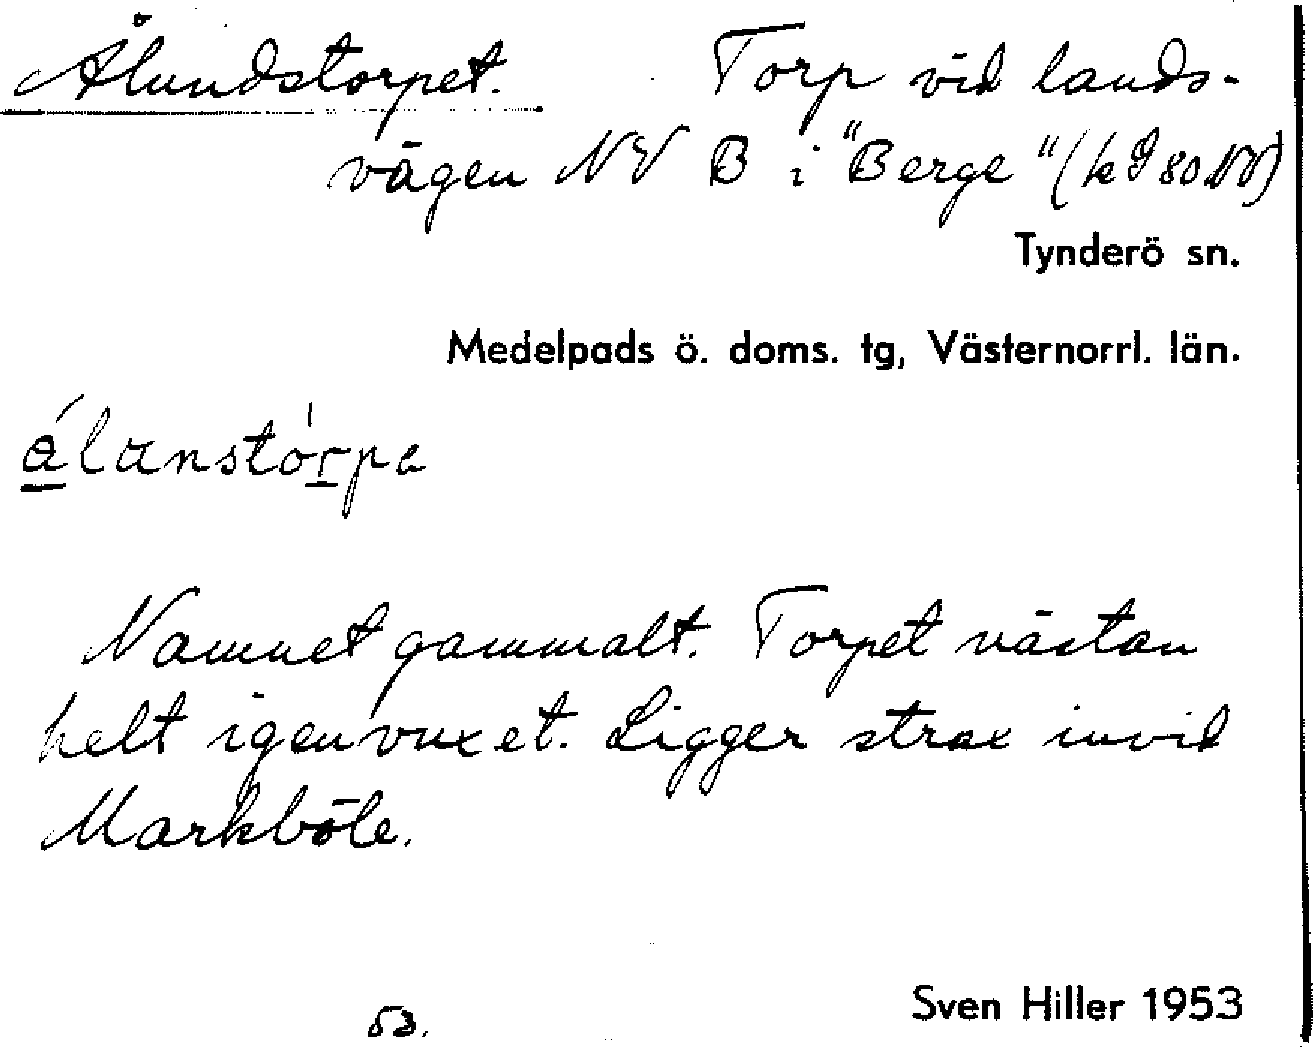 Ålundstorpet. Torp vid lands-
vägen NV B i "Berge" (k 80 NV)
Tynderö sn.
Medelpads ö. doms. tg, Västernorrl. län.
álunstórpe
Namnet gammalt. Torpet nästan
helt igenvuxet. Ligger strax invid
Markböle.
Sven Hiller 1953
53.